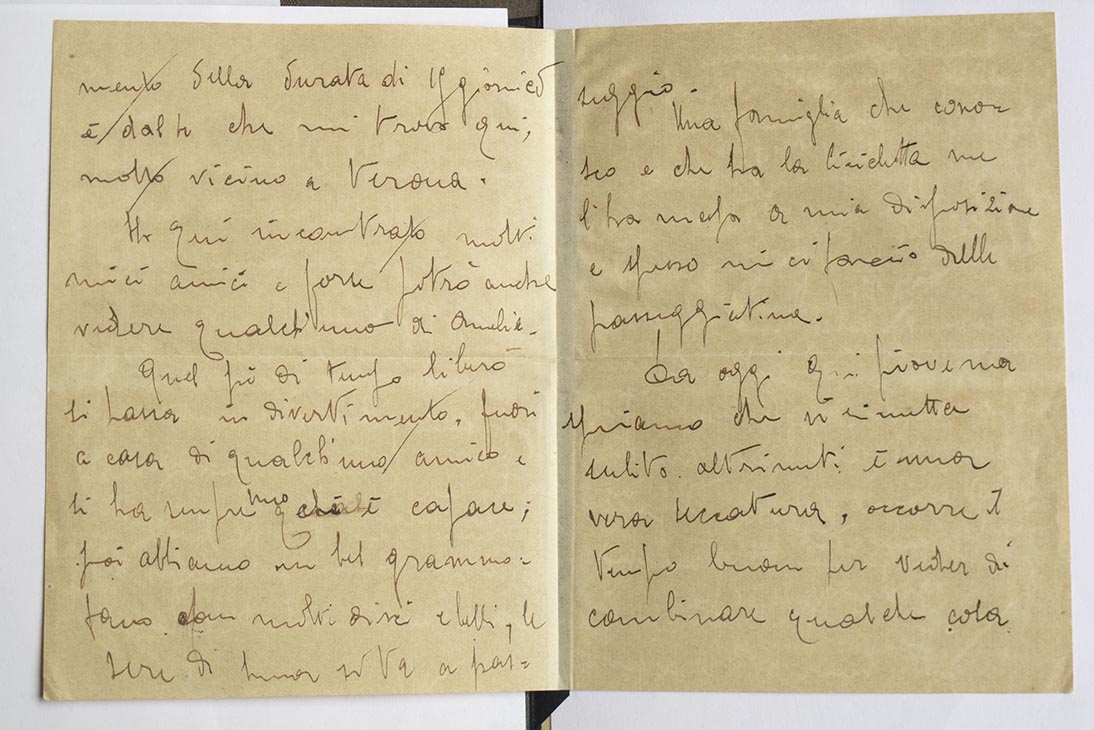 mento della durata di 15 giorni ed
è dal 1° che mi trovo qui,
molto vicino a Verona.
Ho qui incontrato molti
miei amici e forse potrò anche
vedere qualch'uno di Amelie.
Quel pò di tempo libero
si passa in divertimento, fuori
a casa di qualch'uno amico e
si ha sempre capace;
poi abbiamo un bel grammo=
fono con molti dischi e belli, le
sere di luna si va a pas=
seggio.
Una famiglia che cono=
sco e che ha la bicicletta me
l'ha messa a mia disposizione
e spesso mi ci faccio delle
passeggiatine.
Da oggi qui piove ma
speriamo che si rimetta
subito altrimenti è una
vera seccatura, occorre il
tempo buono per veder di
combinare qualche cosa